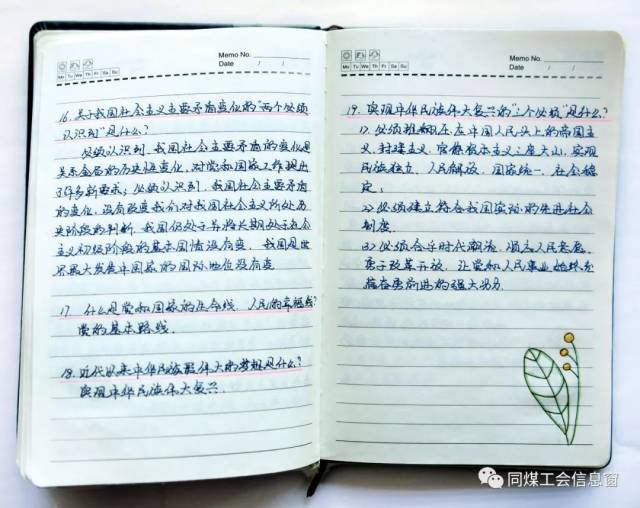 Memo No.
Mo Tu We Th Fr Sa Su
Date / /
16. 关于我国社会主义主要矛盾变化的"两个必须
认识到"是什么?
必须认识到,我国社会主要矛盾的变化是
关系全局的历史性变化,对党和国家工作提出
了许多新要求;必须认识到,我国社会主要矛盾
的变化,没有改变我们对我国社会主义所处历
史阶段的判断,我国仍处于并将长期处于社会
主义初级阶段的基本国情没有变,我国是世
界最大发展中国家的国际地位没有变
17. 什么是党和国家的生命线、人民的幸福线?
党的基本路线.
18. 近代以来中华民族最伟大的梦想是什么?
实现中华民族伟大复兴.
Memo No.
Mo Tu We Th Fr Sa Su
Date / /
19. 实现中华民族伟大复兴的"三个必须"是什么?
1). 必须推翻压在中国人民头上的帝国主
义、封建主义、官僚资本主义三座大山,实现
民族独立、人民解放、国家统一、社会稳
定;
2) 必须建立符合我国实际的先进社会
制度.
3) 必须合乎时代潮流、顺应人民意愿,
勇于改革开放,让党和人民事业始终充
满奋勇前进的强大动力.
同煤工会信息窗